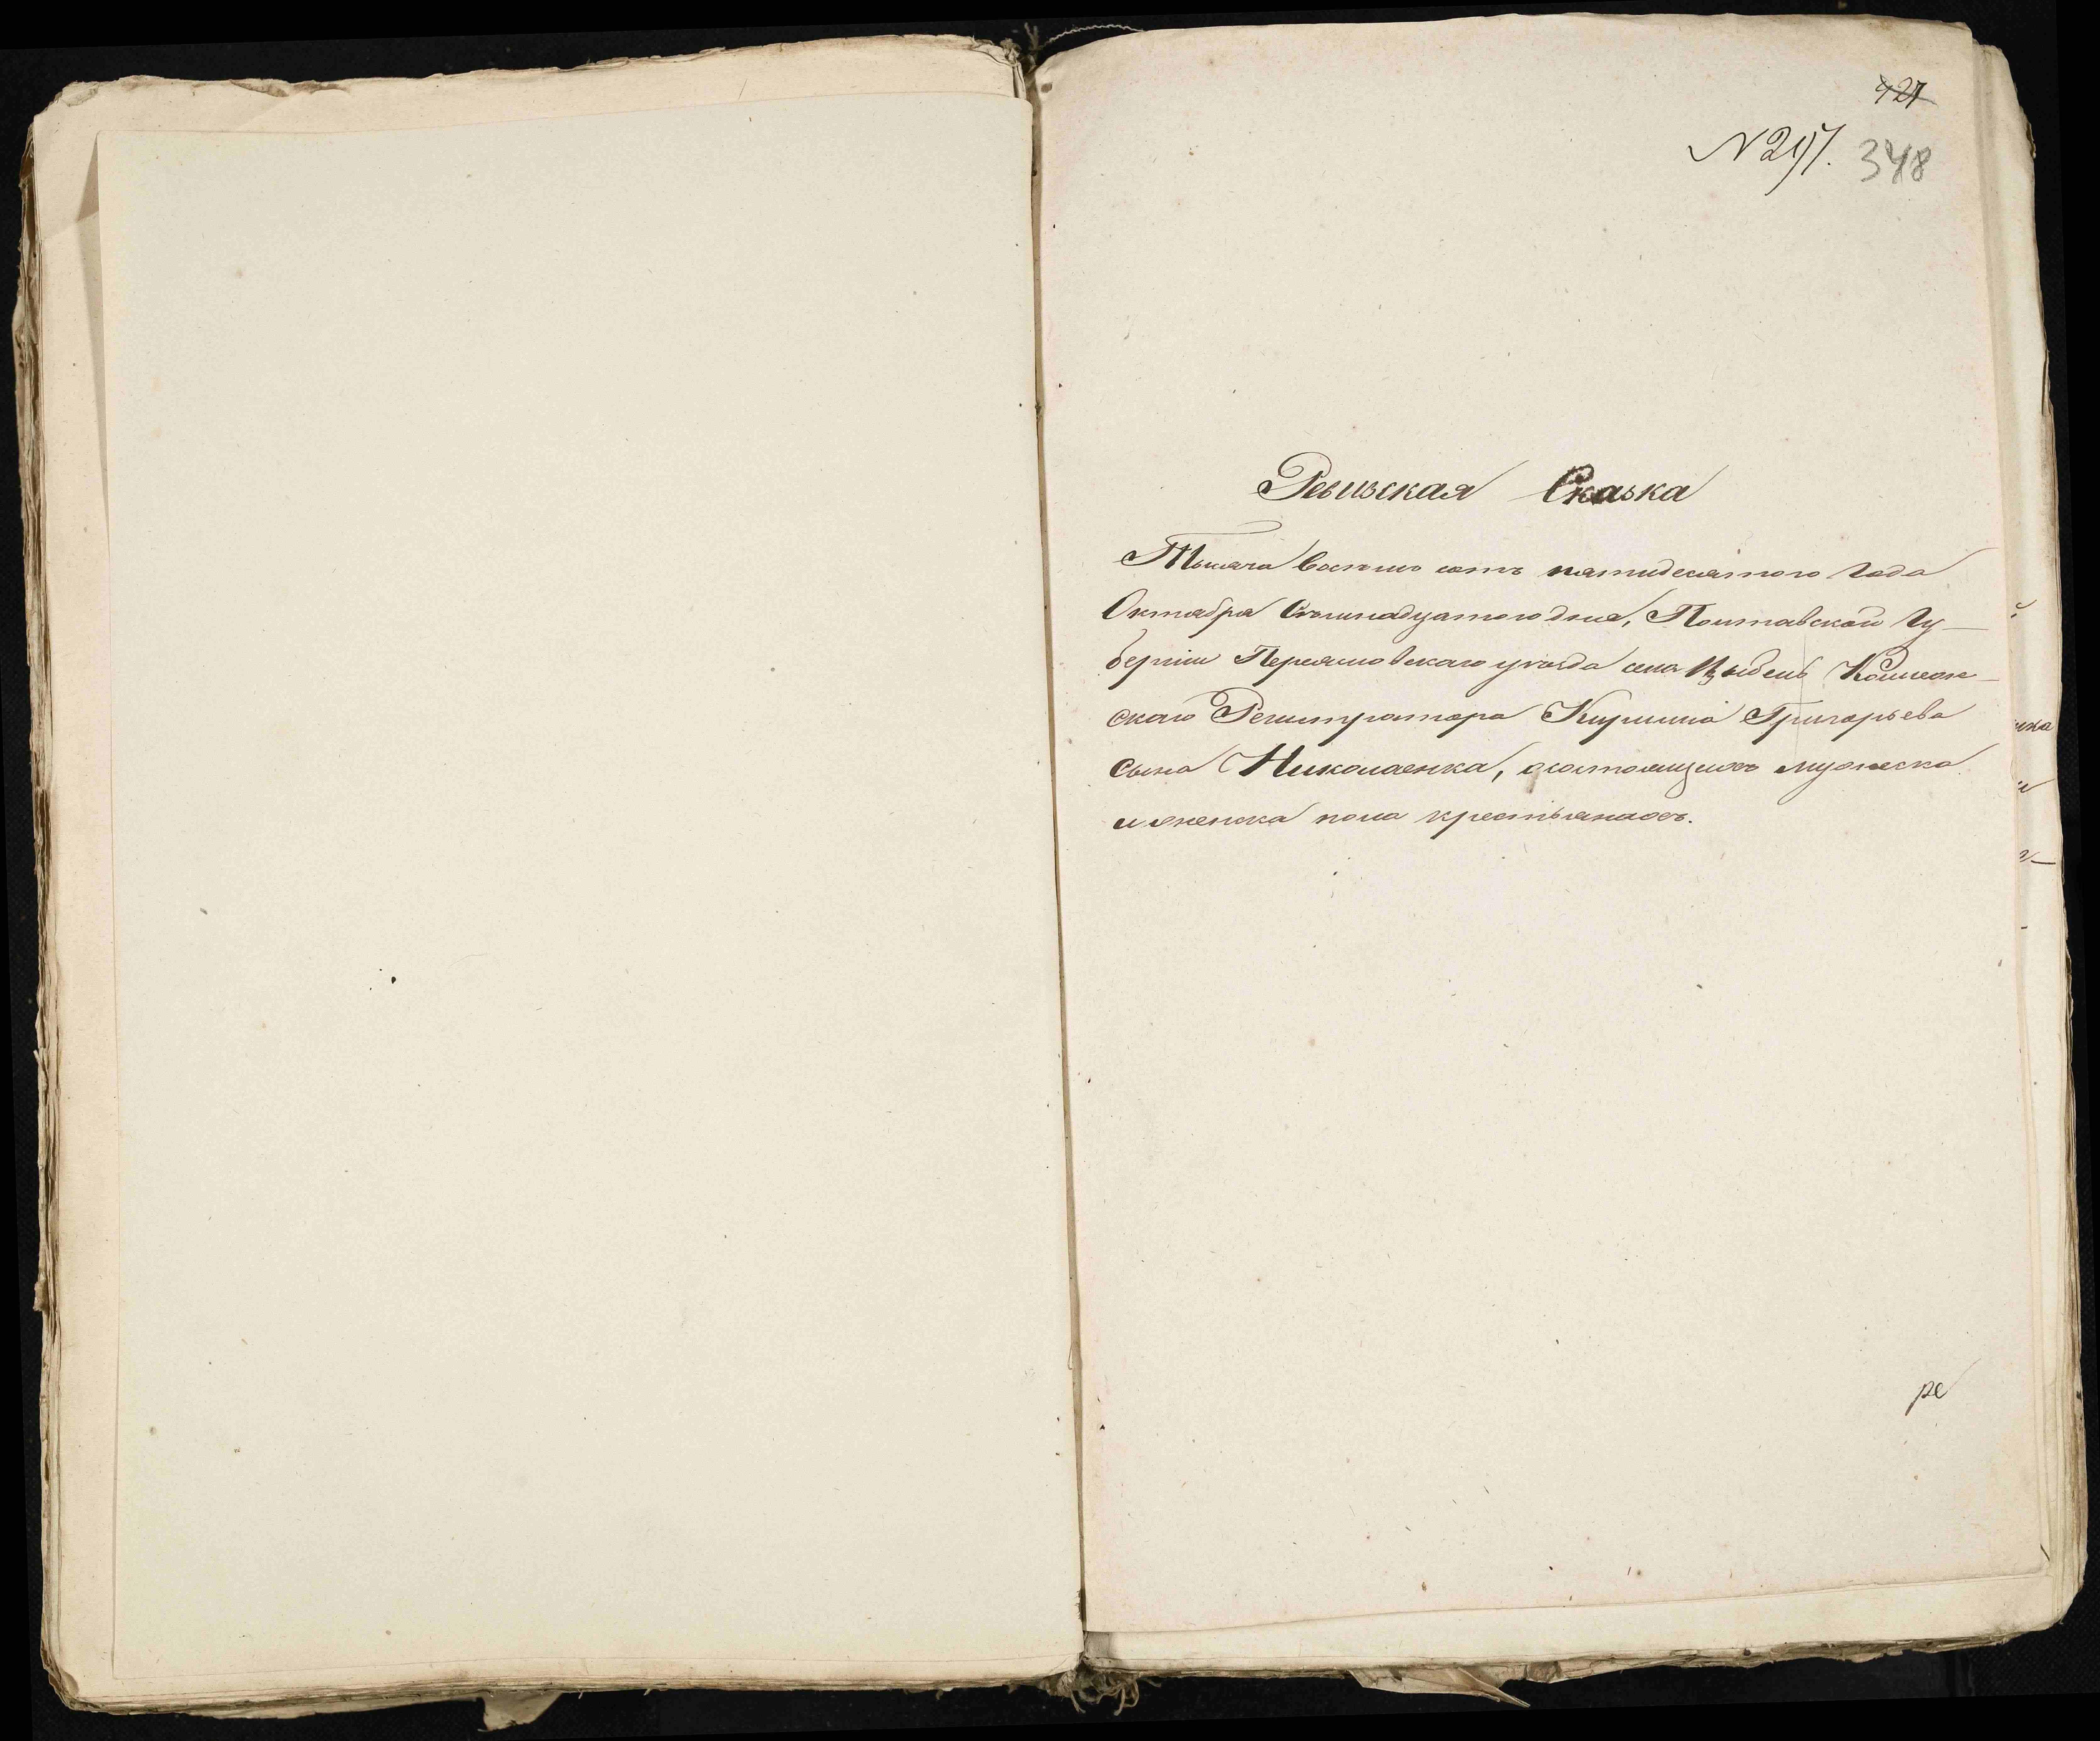 427
N 297. 348
Ревизская Сказка
Тысяча восемь сотъ пятидесятого года
Октября дня, Полтавской Гу-
берніи Переяславскаго уезда села Цыбель Коллеж-
скаго Регистратора Кирилла Григорьева
сына Николаенка, о состоящихъ мужеска
и женска пола крестьянахъ.
ре